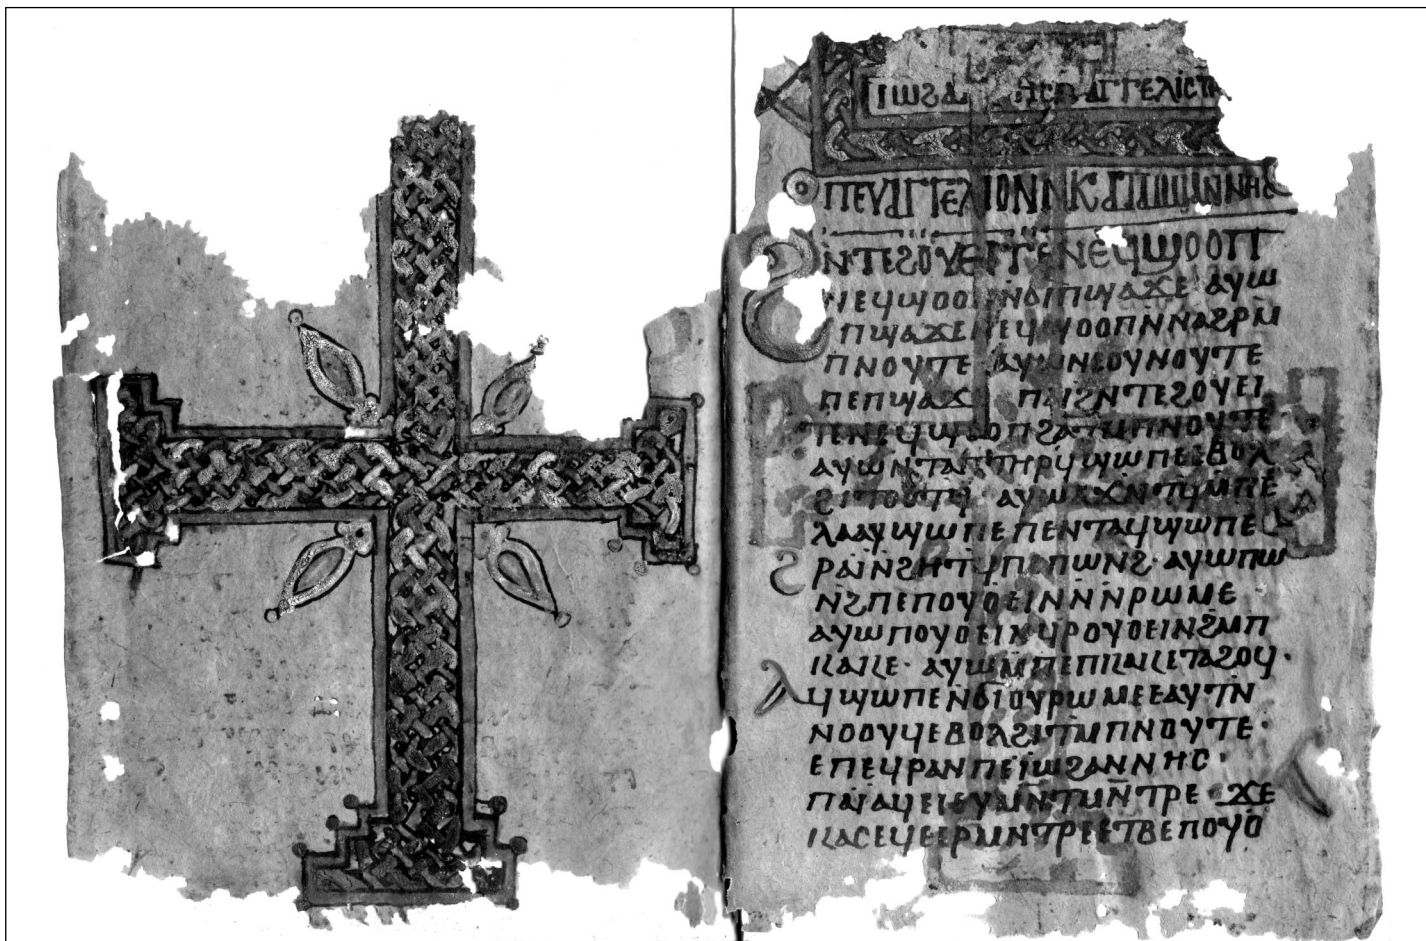 ⲓⲱϩⲁ ⲏⲥ ⲁⲅⲅⲉⲗⲓⲥⲧ
ⲡⲉⲩⲁⲅⲅⲉⲗⲓⲟⲛ ⲛⲕⲁⲧⲁⲓⲱϩⲁⲛⲛⲏⲥ
ϩⲛⲧⲉϩⲟⲩⲉⲓⲧⲉⲛⲉϥϣⲟⲟⲡ
ⲛⲉϥϣⲟⲟⲡⲛϭⲓⲡϣⲁϫⲉ ⲁⲩⲱ
ⲡϣⲁϫⲉⲛⲉϥϣⲟⲟⲡⲛⲛⲁϩⲣⲙ
ⲡⲛⲟⲩⲧⲉ ⲁⲩⲱⲛⲉⲟⲩⲛⲟⲩⲧⲉ
ⲡⲉⲡϣⲁϫ ⲡⲁⲓϩⲛⲧⲉϩⲟⲩⲉⲓ
ⲧⲉⲛⲉϥϣⲟⲟⲡϩⲁⲧⲙⲡⲛⲟⲩⲧⲉ
ⲁⲩⲱⲛⲧⲁⲡⲧⲏⲣϥϣⲱⲡⲉⲉⲃⲟⲗ
ϩⲓⲧⲟⲟⲧϥ ⲁⲩⲱⲁϫⲛⲧϥⲙⲡⲉ
ⲗⲁⲁⲩϣⲱⲡⲉ ⲡⲉⲛⲧⲁϥϣⲱⲡⲉ
ϩⲣⲁⲓⲛϩⲏⲧϥⲡⲉⲡⲱⲛϩ· ⲁⲩⲱⲡⲱ
ⲛϩⲡⲉⲡⲟⲩⲟⲉⲓⲛⲛⲛⲣⲱⲙⲉ
ⲁⲩⲱⲡⲟⲩⲟⲉⲓⲛϥⲣⲟⲩⲟⲉⲓⲛϩⲙⲡ
ⲕⲁⲕⲉ· ⲁⲩⲱⲙⲡⲉⲡⲕⲁⲕⲉⲧⲁϩⲟϥ·
ⲁϥϣⲱⲡⲉⲛϭⲓⲟⲩⲣⲱⲙⲉⲉⲁⲩⲧⲛ
ⲛⲟⲟⲩϥⲉⲃⲟⲗϩⲓⲧⲙⲡⲛⲟⲩⲧⲉ·
ⲉⲡⲉϥⲣⲁⲛⲡⲉⲓⲱϩⲁⲛⲛⲏⲥ·
ⲡⲁⲓⲁϥⲉⲓⲉⲩⲙⲛⲧⲙⲛⲧⲣⲉ ϫⲉ
ⲕⲁⲥⲉϥⲉⲉⲣⲙⲛⲧⲣⲉⲉⲧⲃⲉⲡⲟⲩⲟ